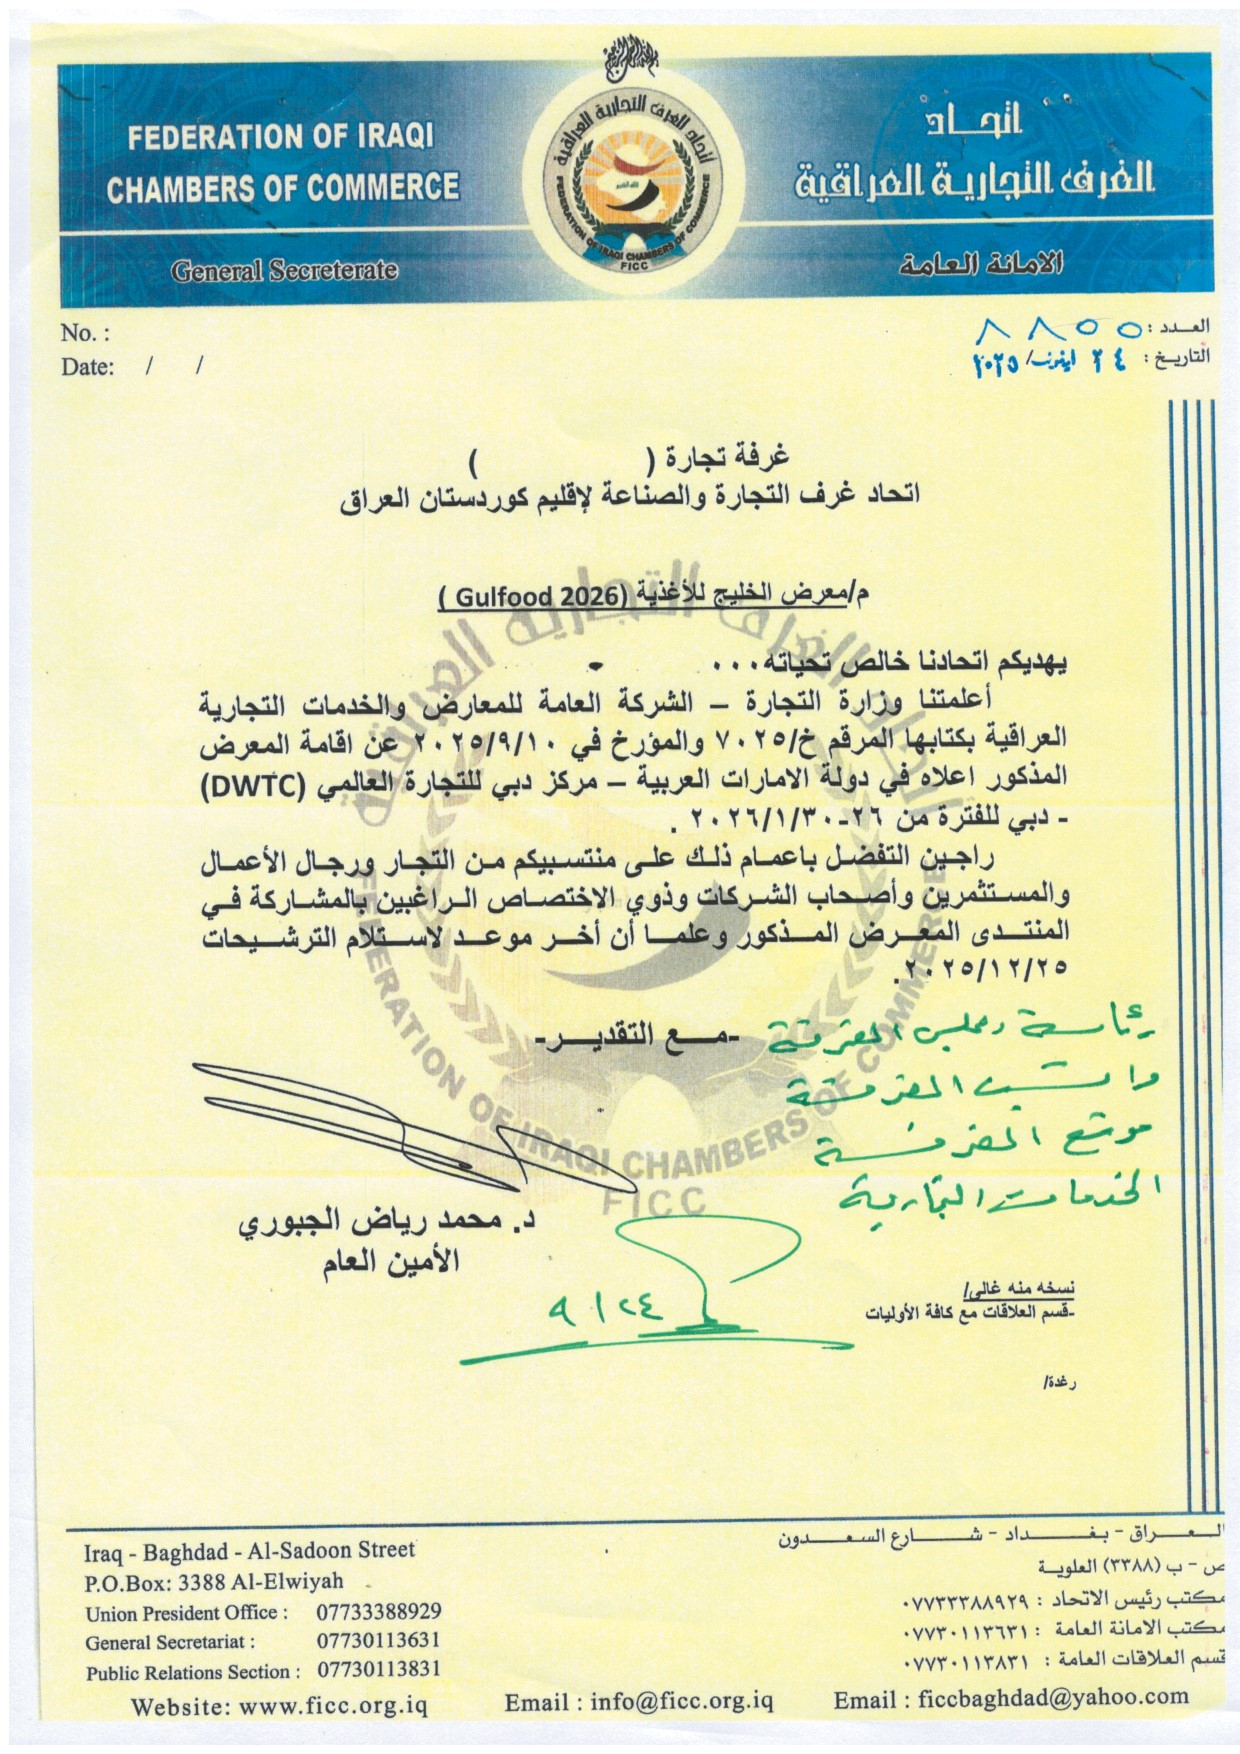 FEDERATION OF IRAQI
CHAMBERS OF COMMERCE
General Secreterate
اتحاد الغرف التجارية العراقية
FEDERATION OF IRAQI CHAMBERS OF COMMERCE
FICC
اتحاد
الغرف التجارية العراقية
الامانة العامة
No. :
Date: / /
العدد : ٨٨٥٥
التاريخ : ٢٤ /٢٠٢٥
غرفة تجارة ( )
اتحاد غرف التجارة والصناعة لإقليم كوردستان العراق
م/معرض الخليج للأغذية (Gulfood 2026 )
يهديكم اتحادنا خالص تحياته...
أعلمتنا وزارة التجارة – الشركة العامة للمعارض والخدمات التجارية
العراقية بكتابها المرقم خ/٧٠٢٥ والمؤرخ في ٢٠٢٥/٩/١٠ عن اقامة المعرض
المذكور اعلاه في دولة الامارات العربية – مركز دبي للتجارة العالمي (DWTC)
- دبي للفترة من ٢٦-٢٠٢٦/١/٣٠ .
راجين التفضل باعمام ذلك على منتسبيكم من التجار ورجال الأعمال
والمستثمرين وأصحاب الشركات وذوي الاختصاص الراغبين بالمشاركة في
المنتدى المعرض المذكور وعلما أن أخر موعد لاستلام الترشيحات
٢٠٢٥/١٢/٢٥.
-مع التقدير-
الغرفة
الغرفة
موقع الغرفة
الخدمات التجارية
د. محمد رياض الجبوري
الأمين العام
٩/٢٤
نسخه منه غالى/
-قسم العلاقات مع كافة الأوليات
رغدة/
اتحاد الغرف التجارية العراقية
FEDERATION OF IRAQI CHAMBERS OF COMMERCE
FICC
Iraq - Baghdad - Al-Sadoon Street
P.O.Box: 3388 Al-Elwiyah
Union President Office : 07733388929
General Secretariat : 07730113631
Public Relations Section : 07730113831
العراق - بغداد - شارع السعدون
ص - ب (٣٣٨٨) العلوية
مكتب رئيس الاتحاد : ٠٧٧٣٣٣٨٨٩٢٩
مكتب الامانة العامة : ٠٧٧٣٠١١٣٦٣١
قسم العلاقات العامة : ٠٧٧٣٠١١٣٨٣١
Website: www.ficc.org.iq Email : info@ficc.org.iq Email : ficcbaghdad@yahoo.com